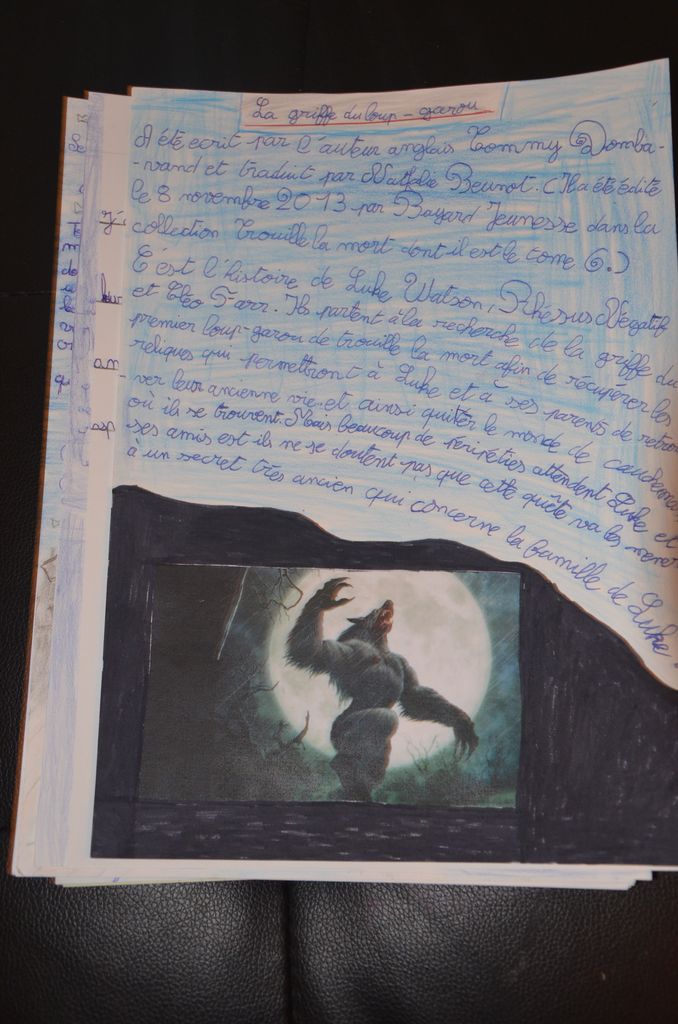 La griffe du loup-garou
A été ecrit par l'auteur anglais Tommy Donba-
-vand et traduit par Nathalie Beunot. (Il a été édité
le 8 novembre 2013 par Bayard Jeunesse dans la
collection Trouille la mort dont il est le tome 6.)
C'est l'histoire de Luke Watson, Rhésus Négatif
et Cléo Farr. Ils partent à la recherche de la griffe du
premier loup-garou de trouille la mort afin de récupérer les
reliques qui permettront à Luke et à ses parents de retrou
-ver leur ancienne vie et ainsi quiter le monde de
où ils se trouvent. Mais beaucoup de péripéties attendent Luke et
ses amis est ils ne se doutent pas que cette quête va les mener
à un secret très ancien qui concerne la famille de Luke.